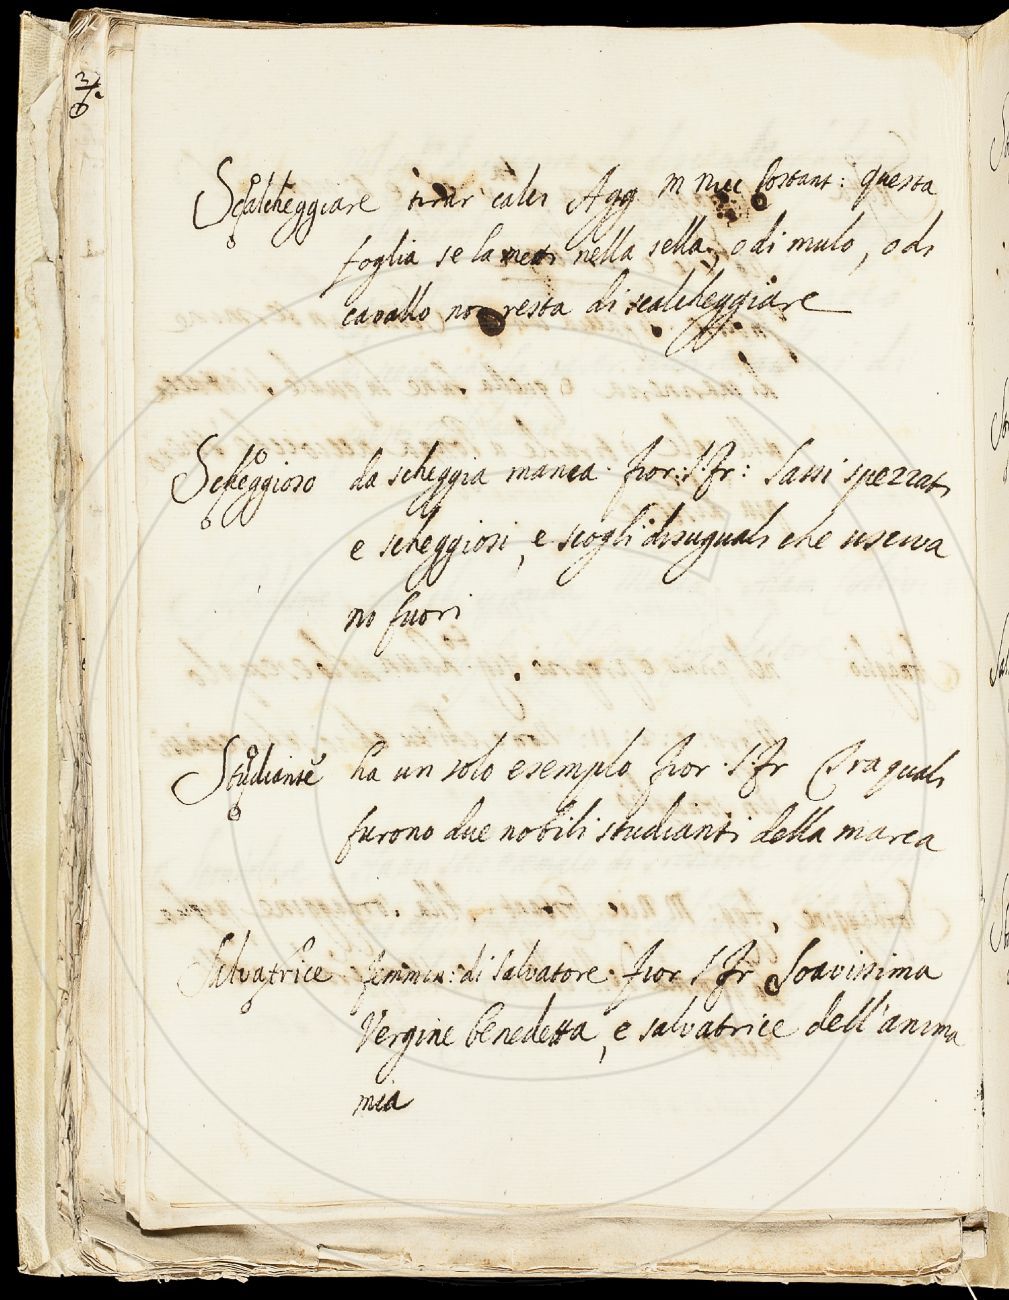 Scalcheggiare tirar calci Agg M Nicc Costant: questa
foglia se la metti nella sella, o di mulo, o di
cavallo non resta di scalcheggiare
Scheggioso da scheggia manca. fior: S. Fr: Sassi spezzati
e scheggiosi, e scogli disuguali che usciva
no fuori
Studiante ha un solo esempio fior. S. Fr Tra quali
furono due nobili studianti della marca
Salvatrice femmin: di Salvatore. fior S Fr Soavissima
Vergine benedetta, e salvatrice dell'anima
mia